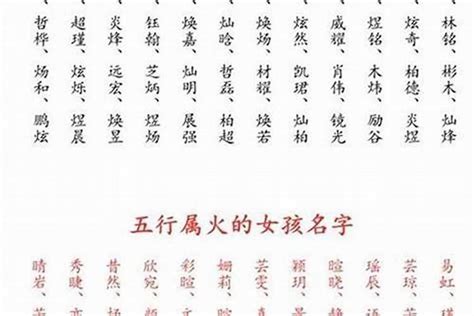 林铭、彬木、灿烽
炫奇、柏德、炎
煜铭、木炜、励谷
威耀、肖伟、镜光
炫然、凯珺、灿
焕炀、材耀、焕若
灿晗、哲磊、柏超
焕嘉、灿明、展强
钰翰、芝炳、煜炀
炎烽、远宏、焕昱
超瑾、炫烁、煜晨
哲桦、炀和、鹏炫
五行属火的女孩名字
易虹、
芸琼、
瑶辰、
暄晓、
颖玥、
芸雯、
姗莉、
彩暄、
欣宛、
昔然、
秀睫、
晴岩、